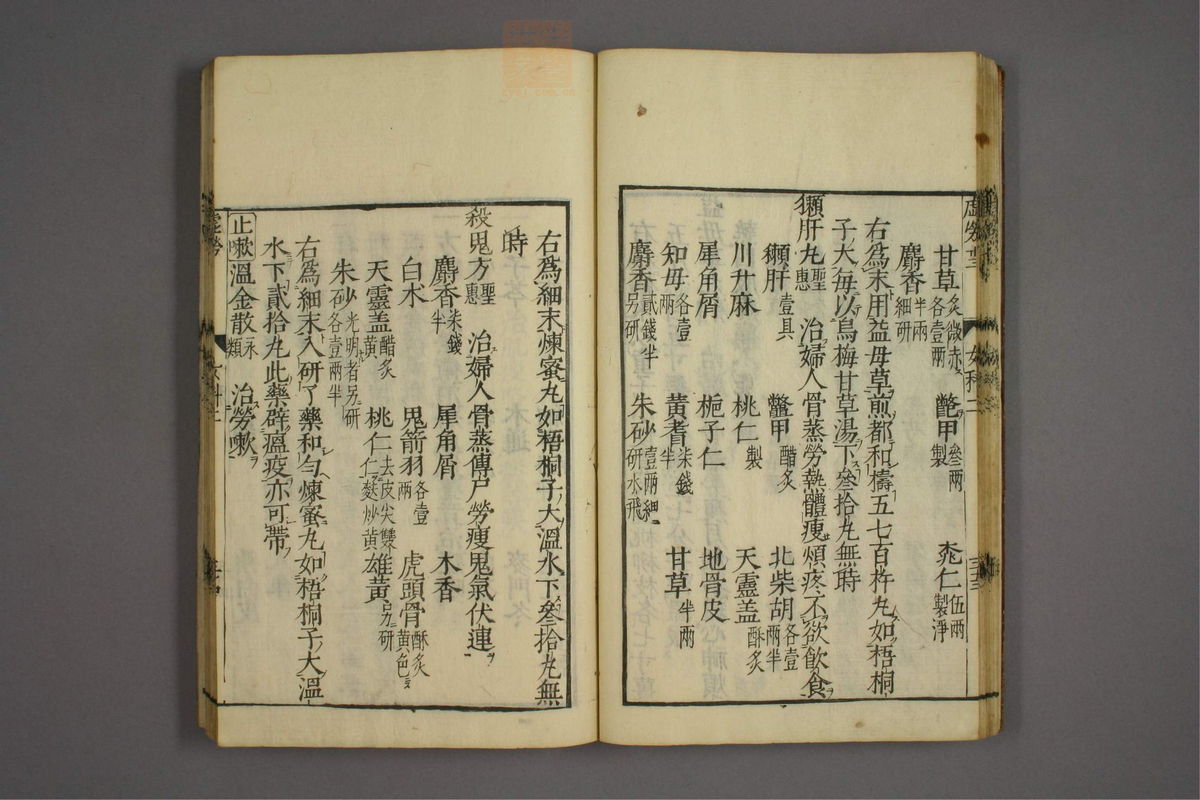 甘草炙微赤各壹兩 鼈甲叄兩製 桃仁伍兩製淨
麝香半兩細研
右爲末用益母草煎都和擣五七百杵丸如梧桐
子大每以烏梅甘草湯下叄拾丸無時
獺肝丸聖惠 治婦人骨蒸勞熱體瘦煩疼不欲飮食
獺肝壹具 鼈甲醋炙 北柴胡各壹兩半
川升麻 桃仁製 天靈盖酥炙
犀角屑 梔子仁 地骨皮
知母各壹兩 黃耆柒錢半 甘草半兩
麝香貳錢半另研 朱砂壹兩細研水飛
右爲細末煉蜜丸如梧桐子大溫水下叄拾丸無
時
殺鬼方聖惠 治婦人骨蒸傳尸勞瘦鬼氣伏連
麝香柒錢半 犀角屑 木香
白术 鬼箭羽各壹兩 虎頭骨酥炙黃色
天靈盖醋炙黃 桃仁去皮尖雙仁麩炒黃 雄黃另研
朱砂光明者另研各壹兩半
右爲細末入研了藥和勻煉蜜丸如梧桐子大溫
水下貳拾丸此藥辟瘟疫亦可帶
止嗽 溫金散永類 治勞嗽